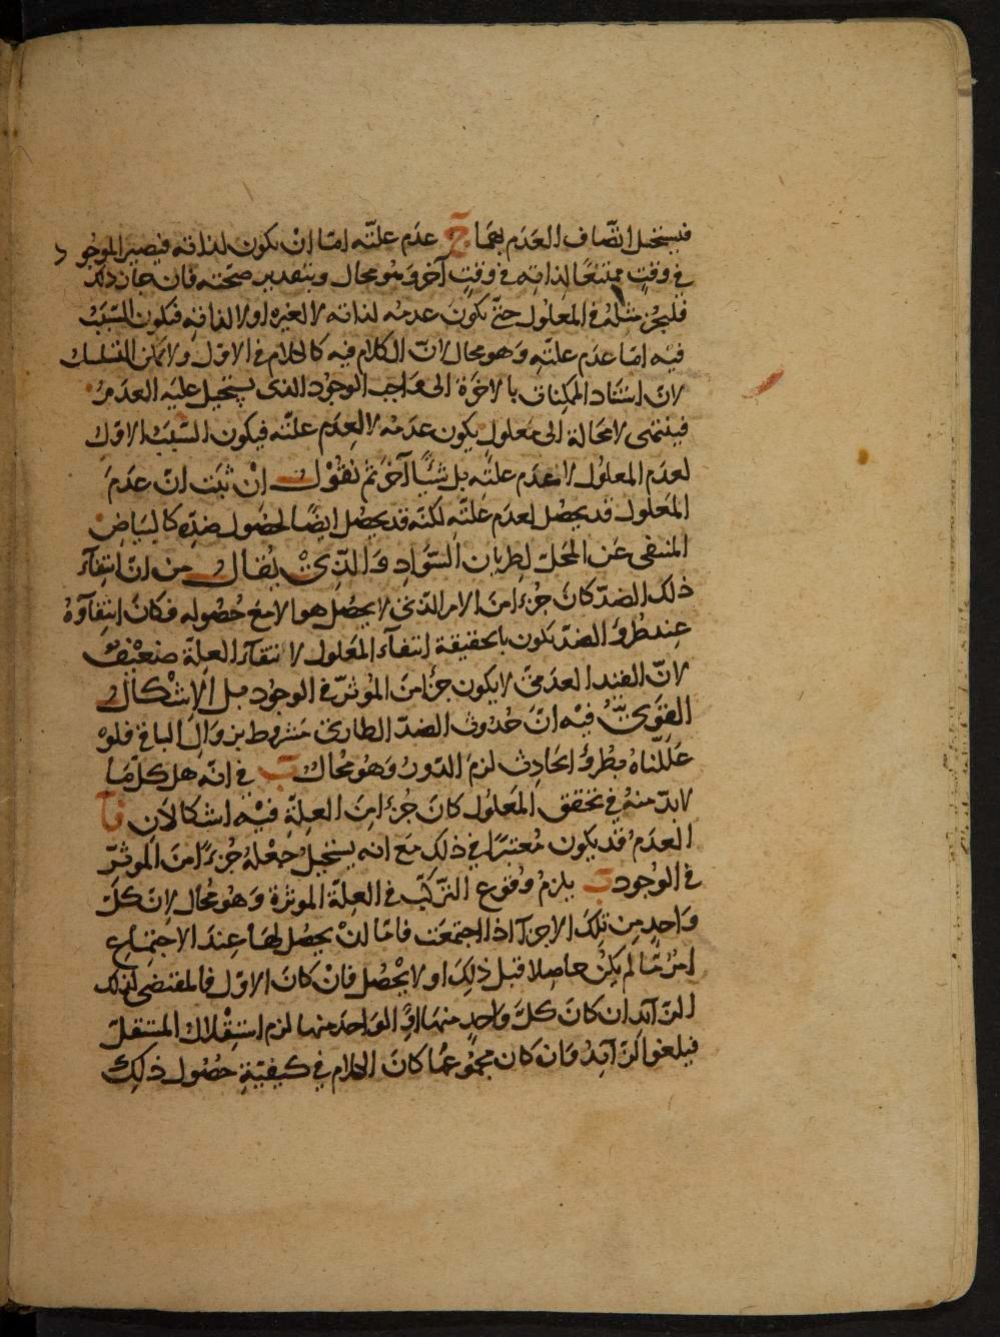 فيستحيل اتصاف العدم بهما ج عدم علته اما ان يكون لذاته فيصير الموجود
في وقتٍ ممتنعًا لذاته في وقتٍ آخر وهو محال وبتقدير صحته فان جاز ذلك
فليجز مثله في المعلول حتى يكون عدمه لذاته لا لغيره او لا لذاته فتكون السبب
فيه اما عدم علته وهو محال لان الكلام فيه كالكلام في الاول ولا يمكن التسلسل
لان استناد الممكنات بالاخرة الى واجب الوجود الذى يستحيل عليه العدم
فينتهى لا محالة الى معلول يكون عدمه لا لعدم علته فيكون السبب الاول
لعدم المعلول لا عدم علته بل شيئًا آخر ثم نقول ان ثبت ان عدم
المعلول قد يحصل لعدم علته لكنه قد يحصل ايضًا لحصول ضده كالبياض
المنتفى عن المحل لطريان السواد والذي يقال من ان انتفاء
ذلك الضد كان جزءا من الامر الذي لا يحصل هو الا مع حصوله فكان انتفاؤه
عند طروّ الضد يكون بالحقيقة انتفاء المعلول لا نتفاء العلة ضعيف
لان القيد العدمي لا يكون جزءا من المؤثر في الوجود بل الاشكال
القوي فيه ان حدوث الضد الطاري مشروط بزوال الباقي فلو
عللناه بطروّ الحادث لزم الدور وهو محال ب في انه هل كل ما
لا بد منه في تحقق المعلول كان جزءا من العلة فيه اشكالان آ
العدم قد يكون معتبرا في ذلك مع انه يستحيل جعله جزءًا من المؤثر
في الوجود ب يلزم وقوع التركب في العلة المؤثرة وهو محال لان كل
واحد من تلك الاجزآ اذا اجتمعت فاما ان يحصل لها عند الاجتماع
امر ما لم يكن حاصلا قبل ذلك او لا يحصل فان كان الاول فالمقتضى لذلك
الزآئد ان كان كل واحد منها او الواحد منها لزم استقلال المستقل
فيلغو الزآئد وان كان مجموعها كان الكلام في كيفية حصول ذلك